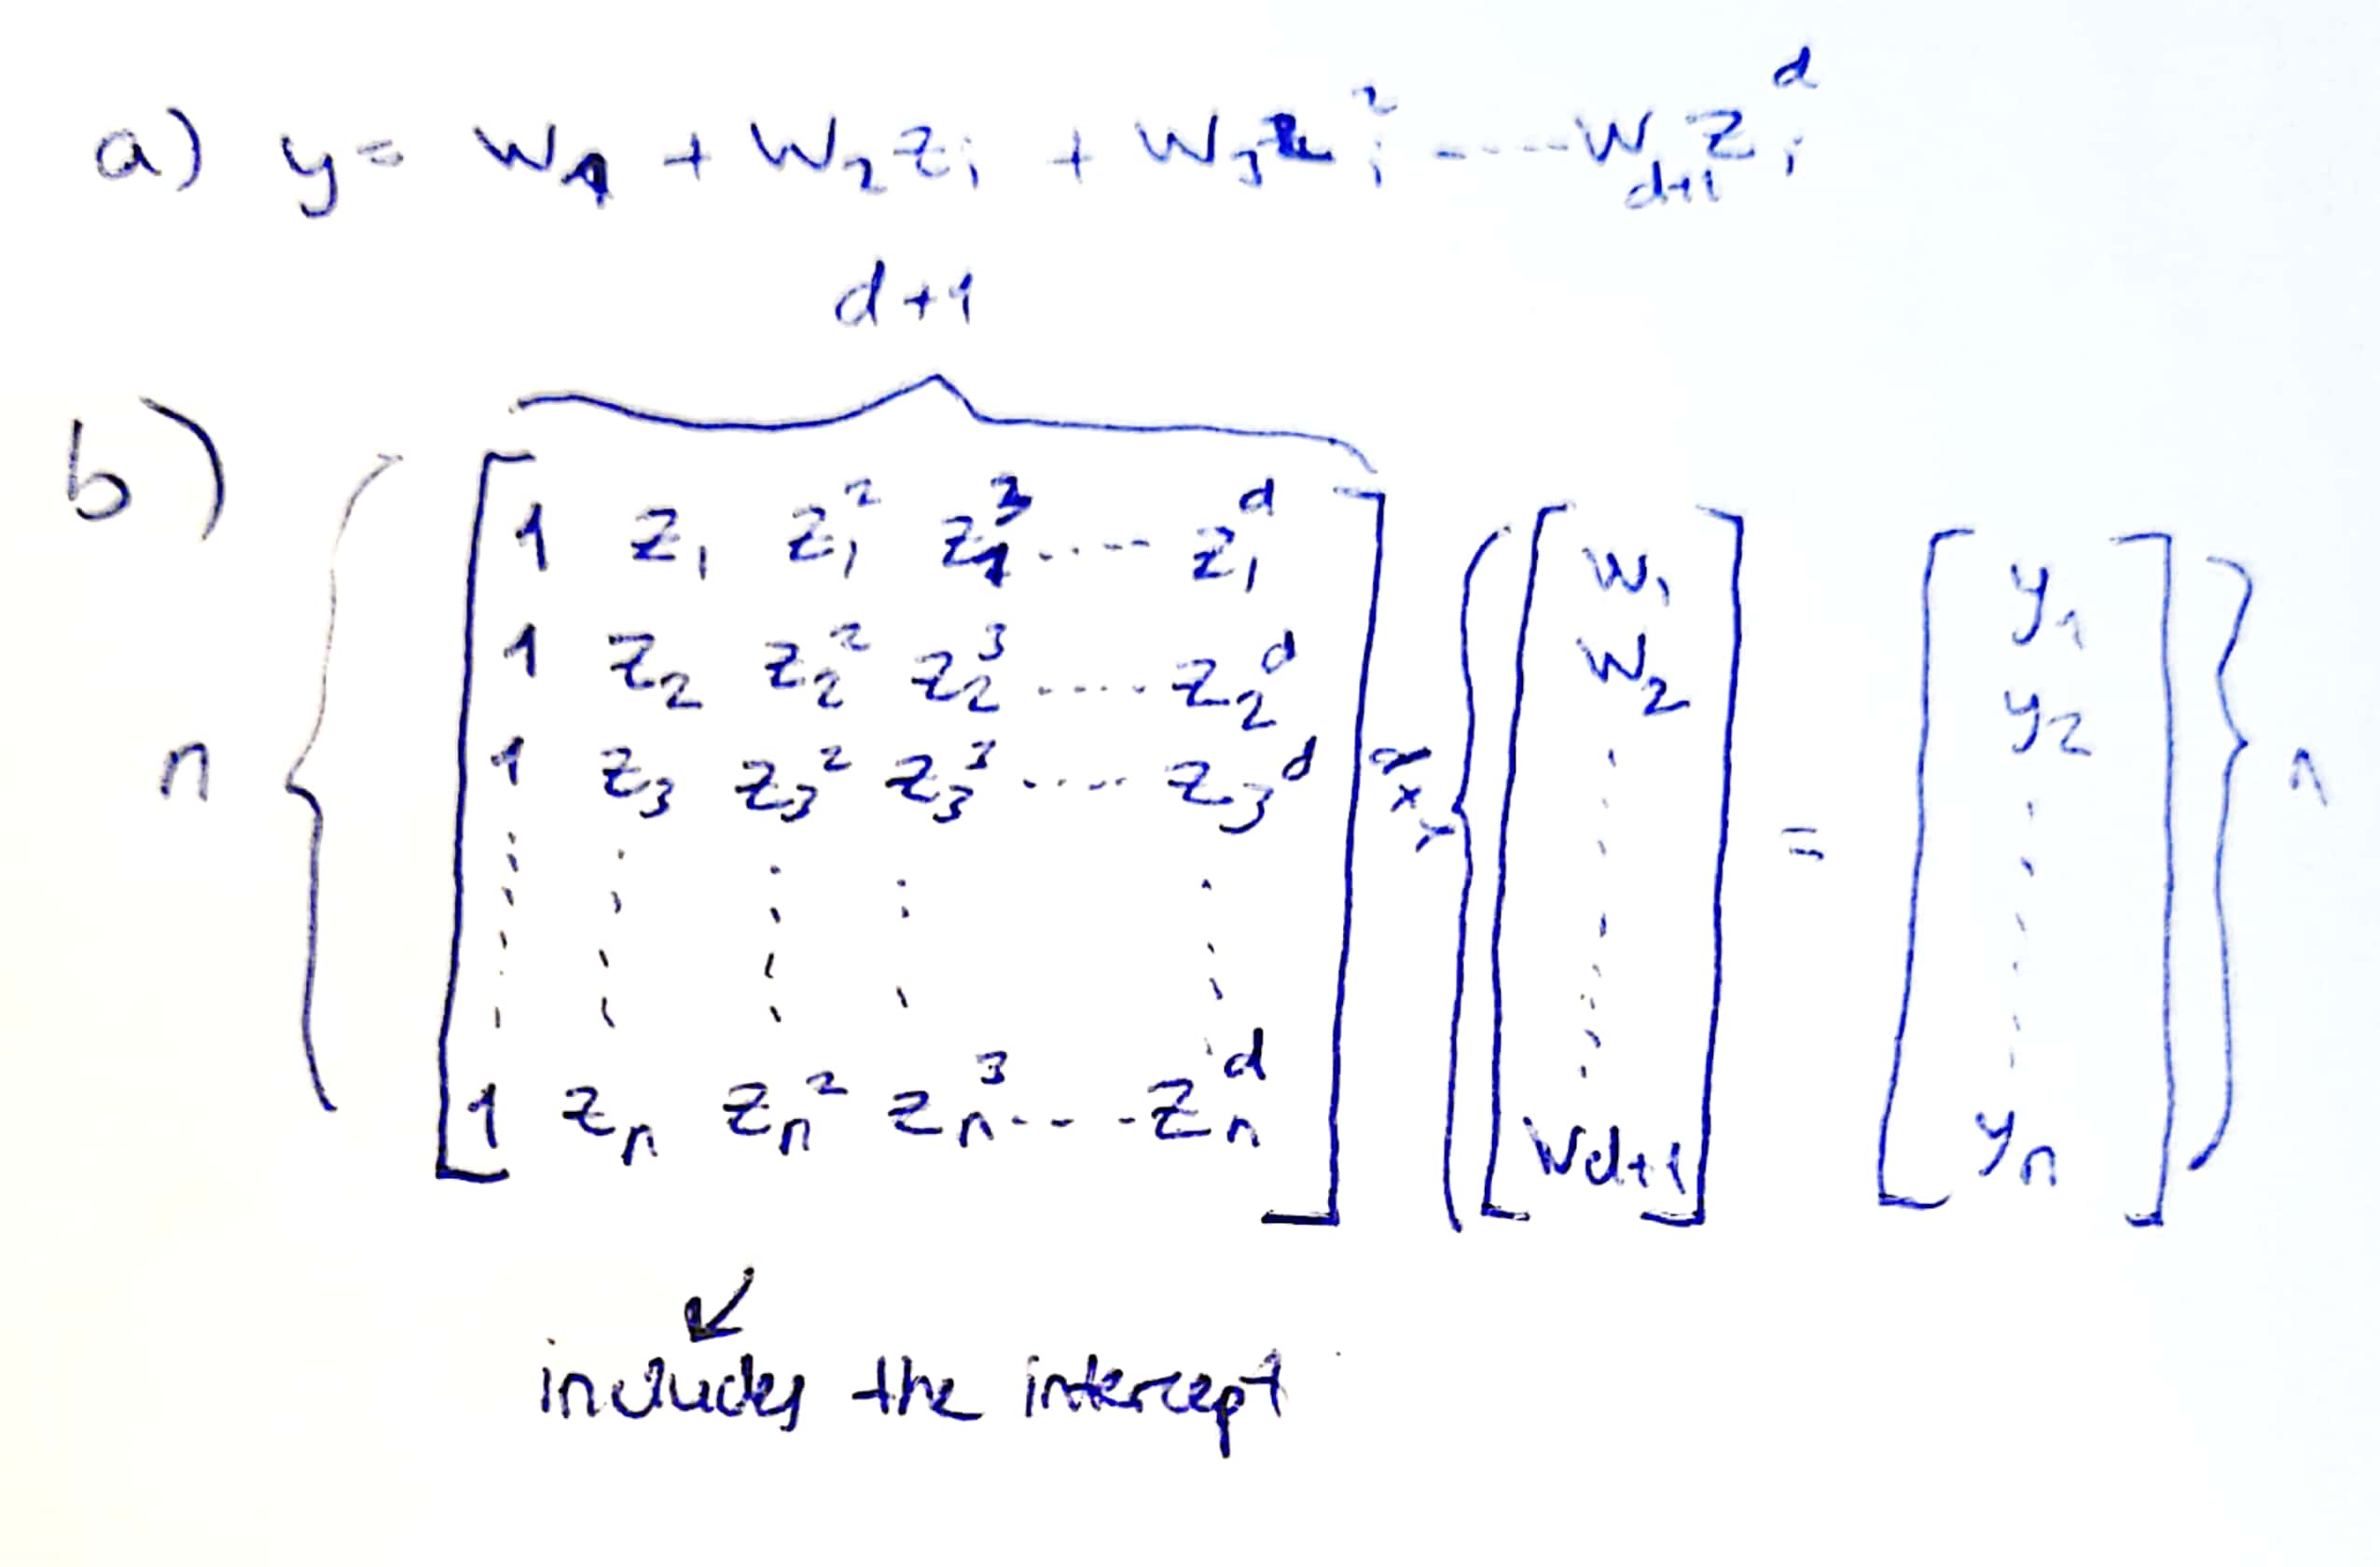 a) y = w₁ + w₂zᵢ + w₃zᵢ² ----- w_{d+1}zᵢᵈ
d+1
b)
1 z₁ z₁² z₁³ ..... z₁ᵈ w₁ y₁
1 z₂ z₂² z₂³ ..... z₂ᵈ w₂ y₂
n 1 z₃ z₃² z₃³ ..... z₃ᵈ = n
1 zₙ zₙ² zₙ³ ---- zₙᵈ w_{d+1} yₙ
↙
includes the intercept